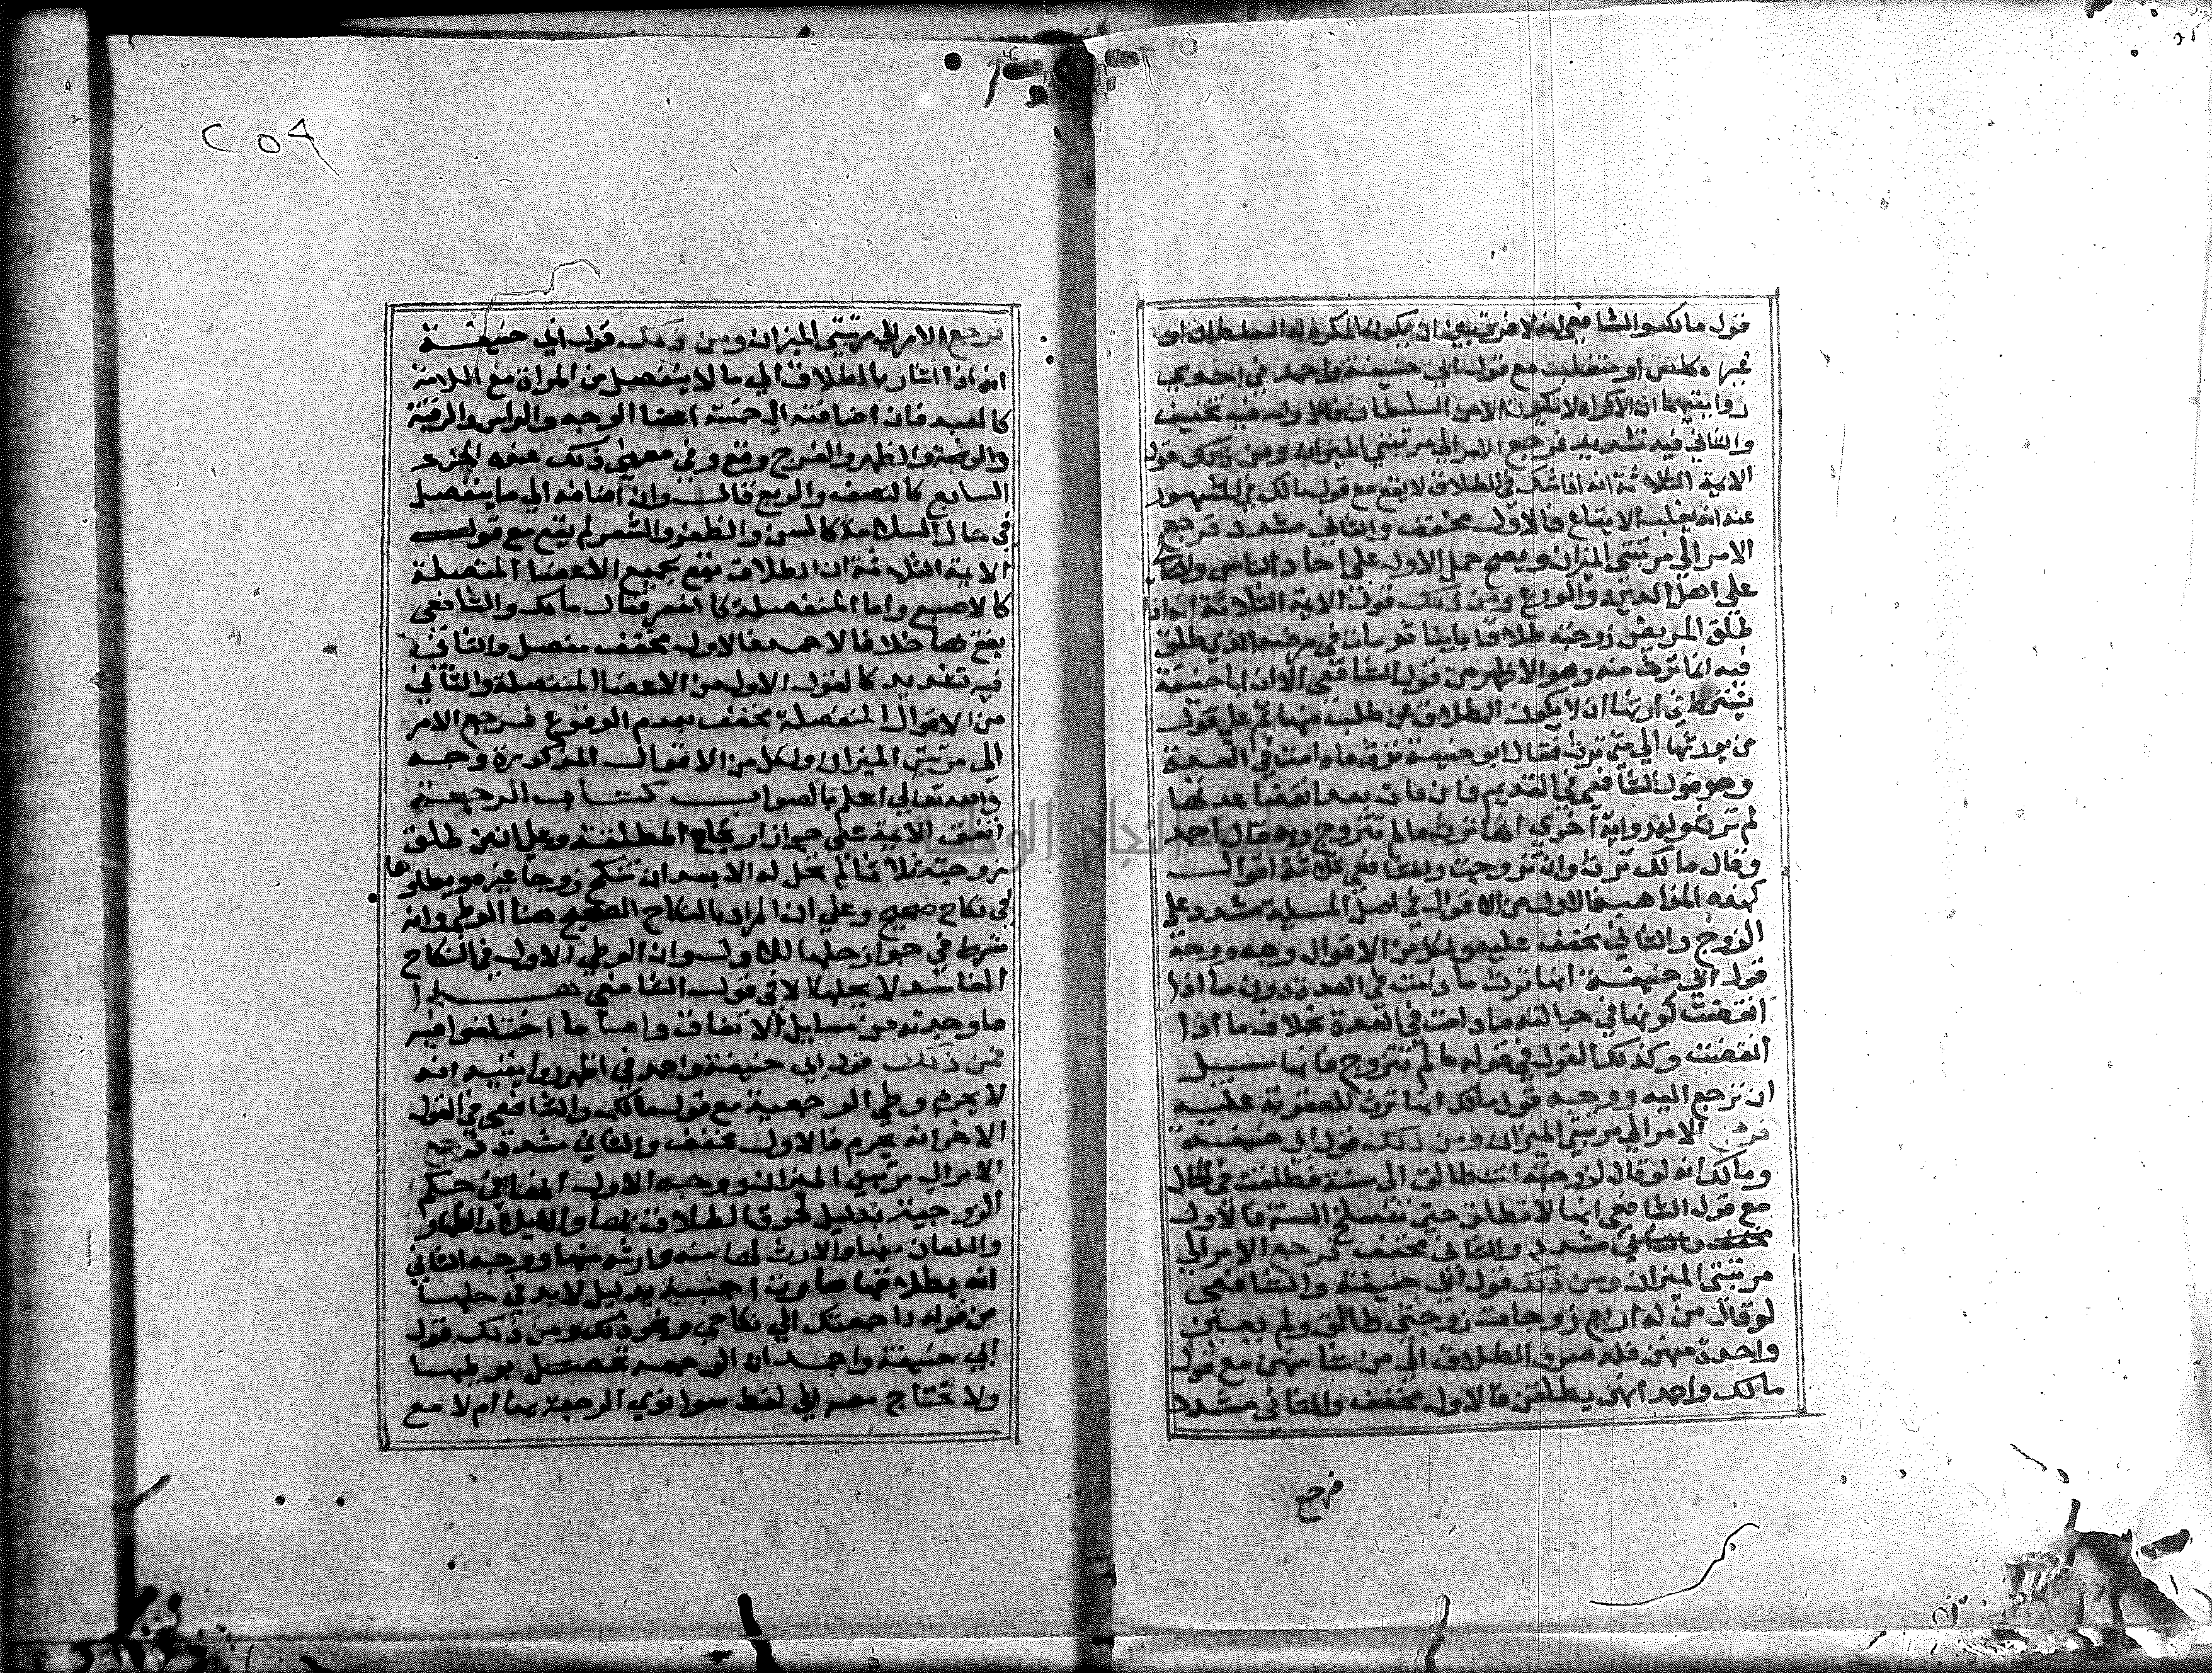 قول مالك والشافعي انه لا فرق بين ان يكون المكره له السلطان او
غيره كلص او متغلب مع قول ابي حنيفة واحمد في احدى
روايتيهما ان الاكراه لا يكون الا من السلطان فالاول فيه تخفيف
والثاني فيه تشديد فرجع الامر الي مرتبتي الميزان ومن ذلك قول
الايمة الثلاثة انه اذا شك في الطلاق لا يقع مع قول مالك في المشهور
عنه انه يغلب الايقاع فالاول مخفف والثاني مشدد فرجع
الامر الي مرتبتي الميزان ويصح حمل الاول على احاد الناس والثاني
على اهل الدين والورع ومن ذلك قول الايمة الثلاثة انه اذا
طلق المريض زوجته طلاقا باينا ثم مات في مرضه الذي طلق
فيه انها ترث منه وهو الاظهر من قول الشافعي الا ان ابا حنيفة
يشترط في ارثها ان لا يكون الطلاق عن طلب منها ثم على قول
من يورثها الي متى ترث فقال ابو حنيفة ترث ما دامت في العدة
وهو قول الشافعي في القديم فان مات بعد انقضا عدتها
لم ترث وله رواية اخرى انها ترث ما لم تتزوج وبه قال احمد
وقال مالك ترث وان تزوجت وللشافعي ثلاثة اقوال
كهذه المذاهب فالاول من الاقوال في اصل المسيلة مشدد على
الزوج والثاني مخفف عليه ولكل من الاقوال وجه ووجه
قول ابي حنيفة انها ترث ما دامت في العدة دون ما اذا
انقضت كونها في حبالته ما دامت في العدة بخلاف ما اذا
انقضت وكذلك القول في قوله ما لم تتزوج فانها سبيل
ان ترجع اليه ووجه قول مالك انها ترث للعقوبة عليه
فرجع الامر الي مرتبتي الميزان ومن ذلك قول ابي حنيفة
ومالك انه لو قال لزوجته انت طالق الى سنة فطلقت في الحال
مع قول الشافعي انها لا تطلق حتى تنسلخ السنة فالاول
مخفف والثاني مشدد والثاني مخفف فرجع الامر الي
مرتبتي الميزان ومن ذلك قول ابي حنيفة والشافعي
لو قال من له اربع زوجات زوجتي طالق ولم يعين
واحدة منهن فله صرف الطلاق الي من شا منهن مع قول
مالك واحمد انهن يطلقن فالاول مخفف والثاني مشدد
فرجع
٢٥٩
فرجع الامر الي مرتبتي الميزان ومن ذلك قول ابي حنيفة
انه اذا اشار بالطلاق الي ما لا ينفصل من المراة مع السلامة
كاليد فان اضافته الي خمسة اعضا الوجه والراس والرقبة
والظهر والفرج وقع وفي معنى ذلك عنده الجزء
السايع كالنصف والربع قال وان اضافه الي ما ينفصل
في حال السلامة كالسن والظفر والشعر لم يقع مع قول
الايمة الثلاثة ان الطلاق يقع بجميع الاعضا المتصلة
كالاصبع واما المنفصلة كالشعر فقال مالك والشافعي
يقع بها خلافا لاحمد فالاول مخفف مفصل والثاني
فيه تشديد كالقول الاول من الاعضا المتصلة والثاني
من الاقوال المنفصلة مخفف بعدم الوقوع فرجع الامر
الى مرتبتي الميزان ولكل من الاقوال المذكورة وجه
والله تعالى اعلم بالصواب كتاب الرجعة
اتفق الايمة على جواز ارتجاع المطلقة وعلى انه من طلق
زوجته ثلاثا لم تحل له الا بعد ان تنكح زوجا غيره ويطاها
في نكاح صحيح وعلى ان المراد بالنكاح الصحيح هنا الوطي وانه
شرط في جواز حلها للاول وان الوطي الاول في النكاح
الفاسد لا يحلها الا في قول الشافعي هذا
ما وجدته من مسايل الاتفاق واما ما اختلفوا فيه
فمن ذلك قول ابي حنيفة واحمد في اظهر روايتيه انه
لا يحرم وطي الرجعية مع قول مالك والشافعي في القول
الاخر انه يحرم فالاول مخفف والثاني مشدد فرجع
الامر الي مرتبتي الميزان ووجه الاول
الزوجية بدليل لحوق الطلاق بها والايلاء والظهار
واللعان منها والارث لها منه وارثه منها ووجه الثاني
انه بطلاقها صارت اجنبية بدليل لابد في حلها
من قوله راجعتك الي نكاحي ونحو ذلك ومن ذلك قول
ابي حنيفة واحمد ان الرجعة تحصل بوطيها
ولا تحتاج معه الي لفظ سوا نوى الرجعة بها ام لا مع